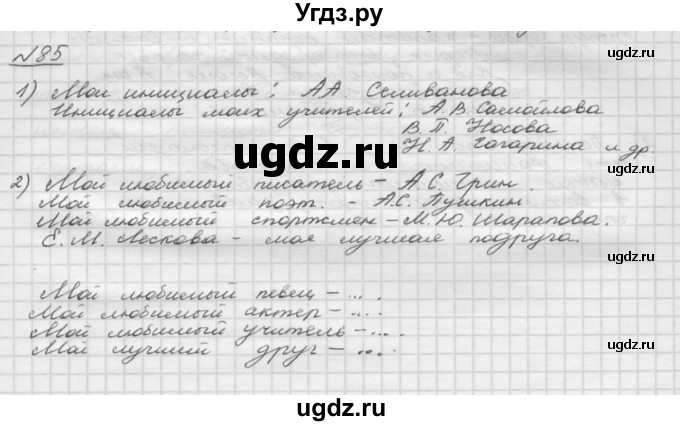 Угдз.ру
ugdz.ru
№85
1) Мои инициалы: А.А. Селиванова
Инициалы моих учителей: А.В. Самойлова
В.П. Носова
Н.А. Гагарина и др.
ugdz.ru
2) Мой любимый писатель – А.С. Грин.
Мой любимый поэт. – А.С. Пушкин
Мой любимый спортсмен – М.Ю. Шарапова.
Е.М. Лескова – моя лучшая подруга.
ugdz.ru
Мой любимый певец – ... .
Мой любимый актер – ... .
Мой любимый учитель – ... .
ugdz.ru
Мой лучший друг – ... .
ugdz.ru
ugdz.ru